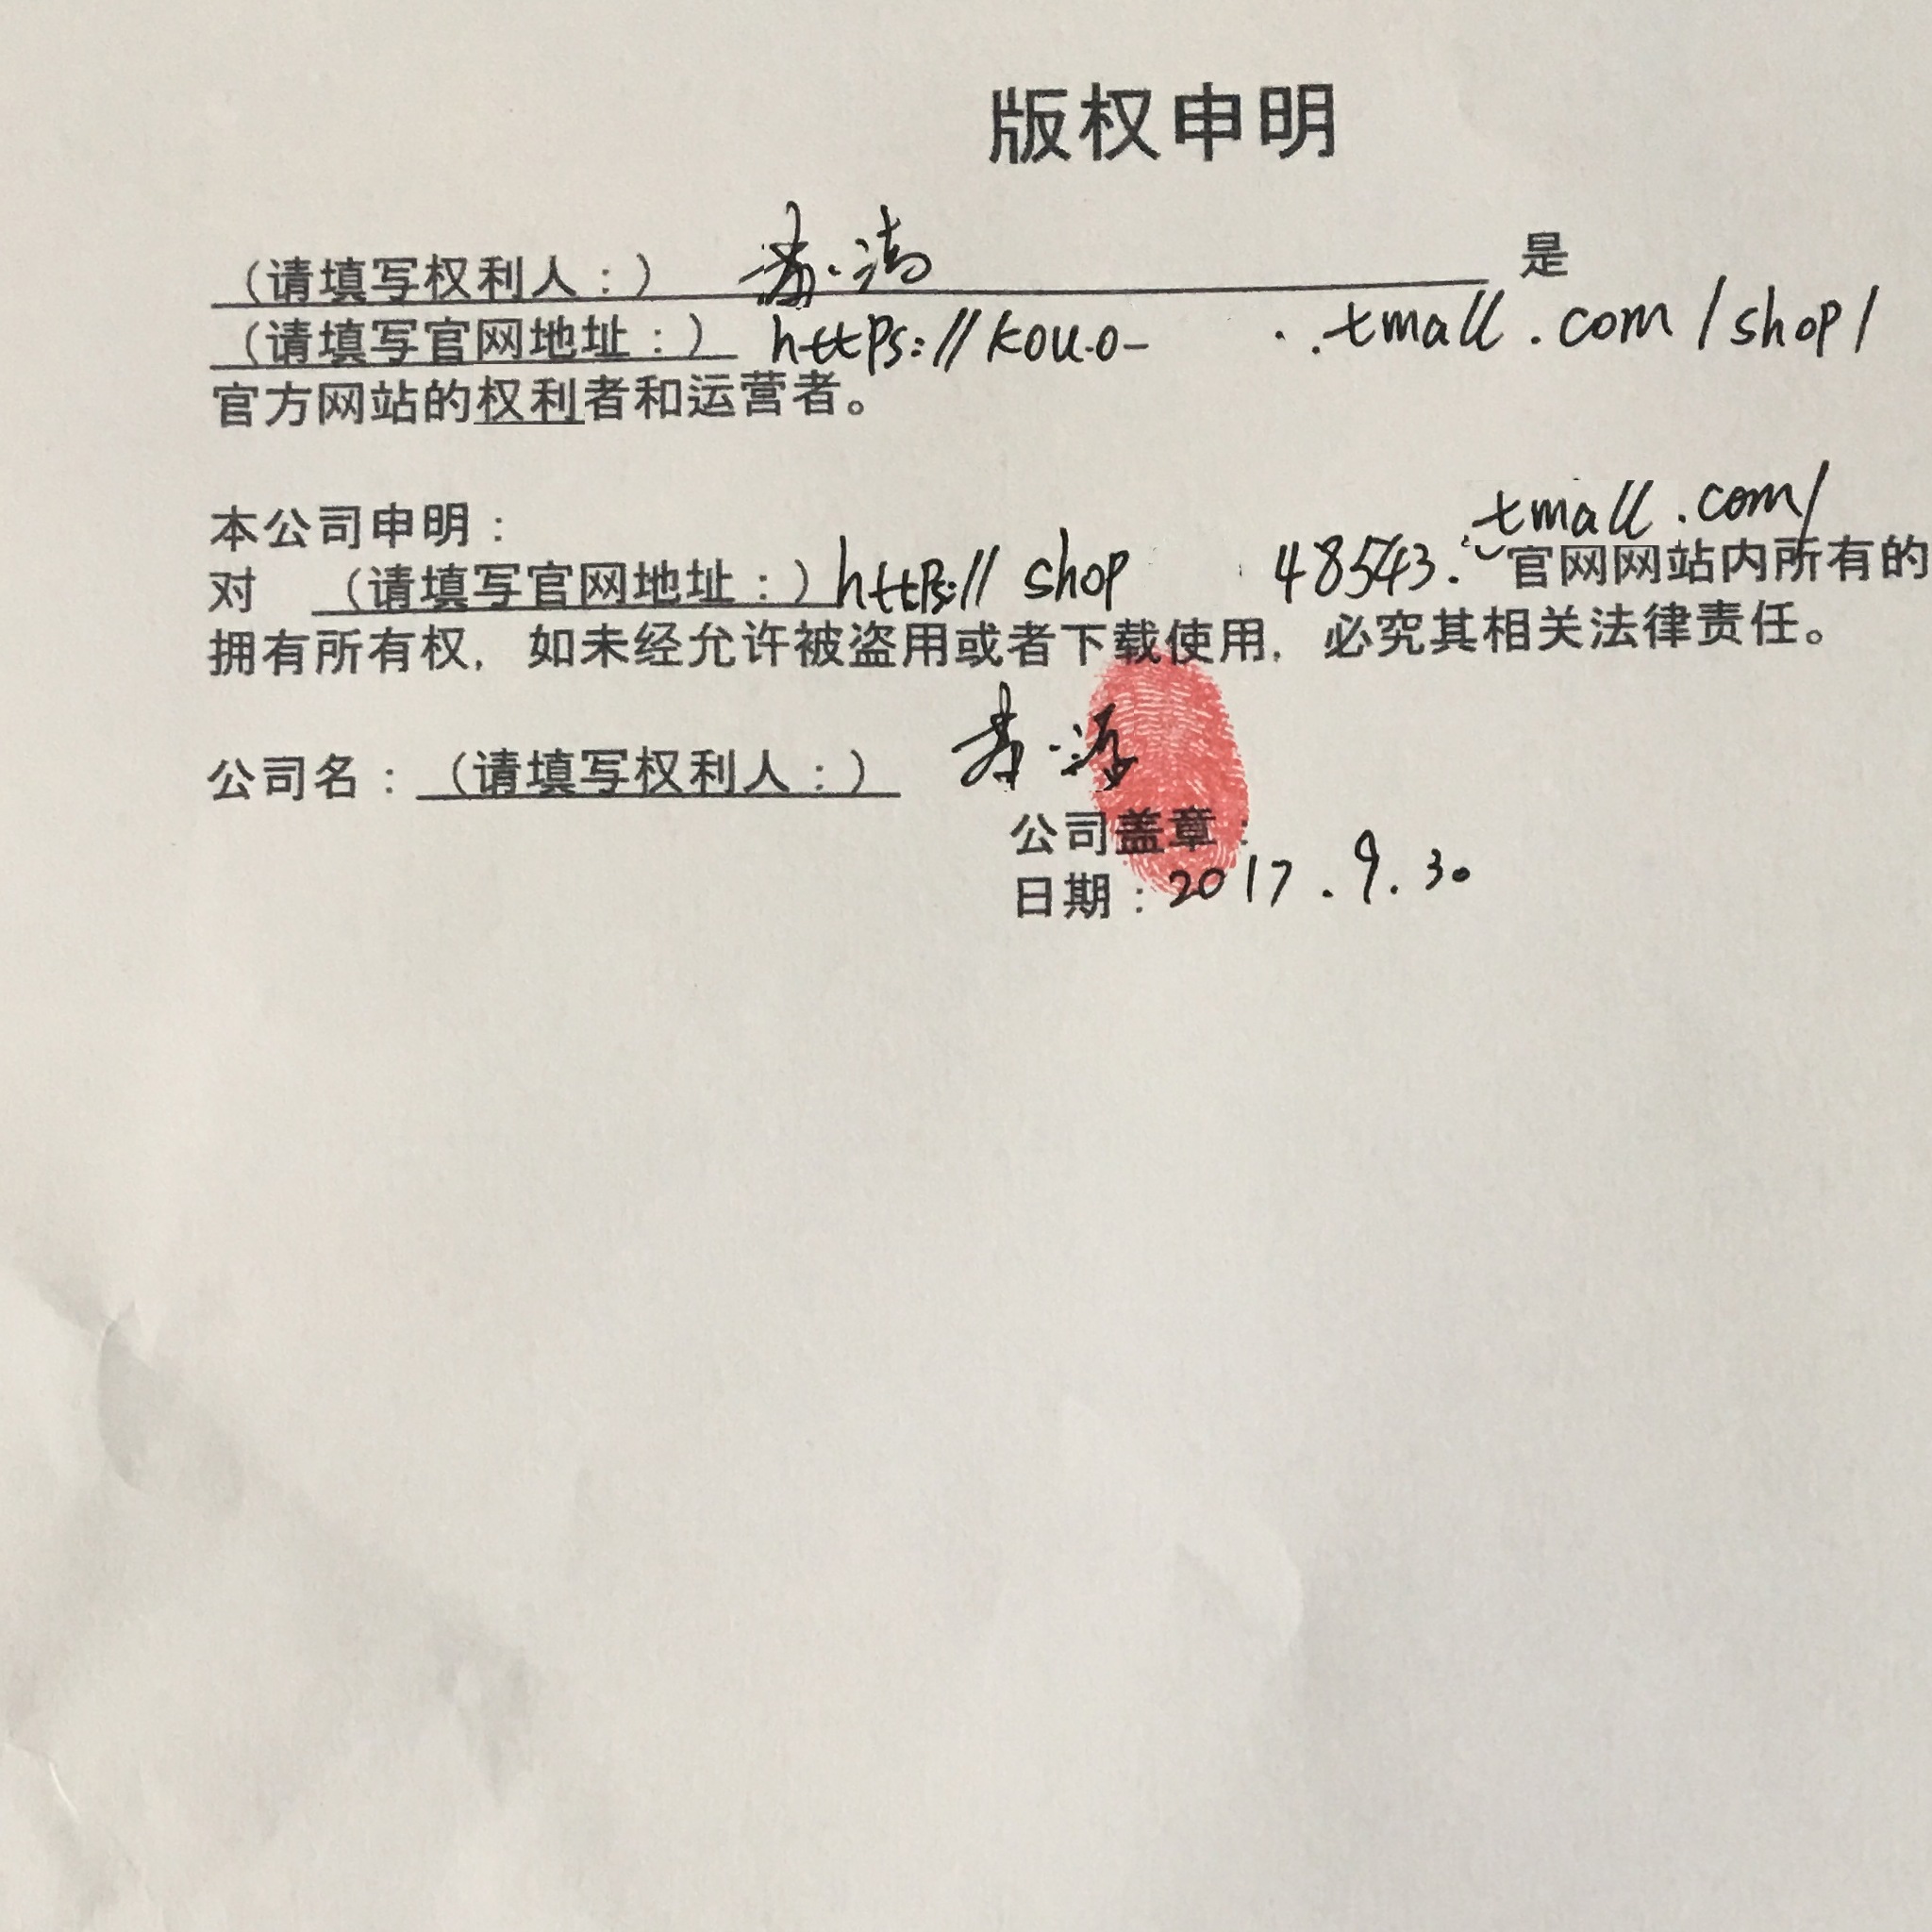 版权申明
（请填写权利人：） 是
（请填写官网地址：） https://kou.o- ..tmall.com/shop/
官方网站的权利者和运营者。
本公司申明：
tmall.com/
对 （请填写官网地址：）https:// shop 48543. 官网网站内所有的
拥有所有权，如未经允许被盗用或者下载使用，必究其相关法律责任。
公司名：（请填写权利人：）
公司盖章：
日期：2017.9.30